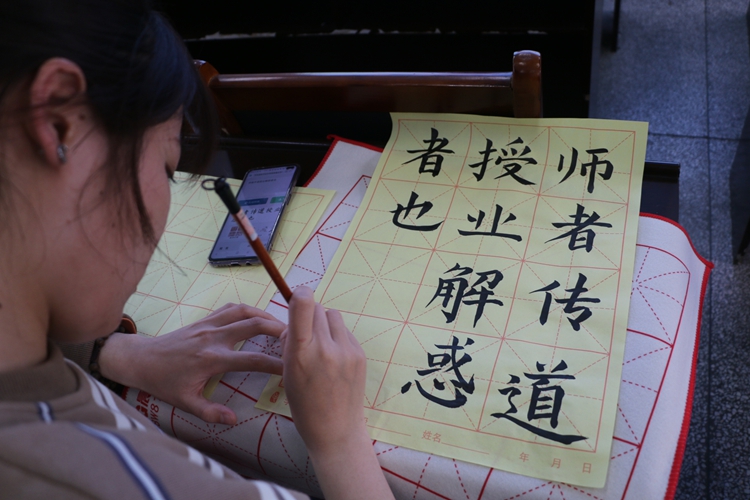 师者传道
授业解惑
者也
姓名
年 月 日